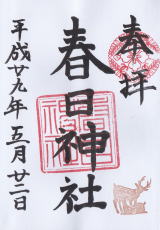 奉拝
春日神社
平成廿九年五月廿二日